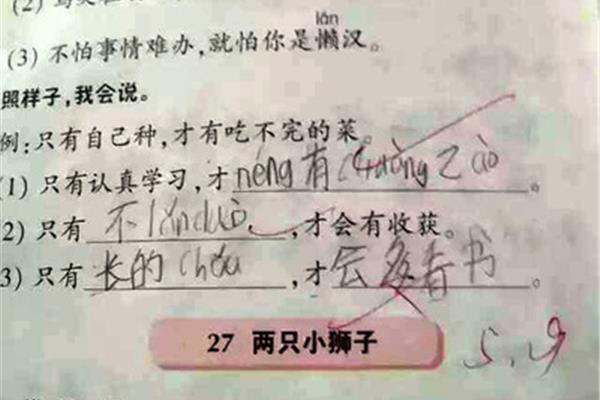 (2)
lǎn
(3) 不怕事情难办,就怕你是懒汉。
照样子,我会说。
例:只有自己种,才有吃不完的菜。
(1) 只有认真学习,才néng有chuàng zào。
2) 只有不lǎn duò,才会有收获。
3) 只有长的chǒu,才会多看书。
27 两只小狮子
5.29